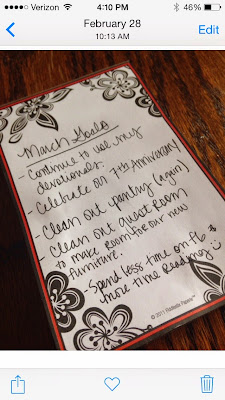 Verizon 4:10 PM 46%
February 28
10:13 AM
Edit
March Goals
- Continue to use my
devotionals.
- Celebrate our 7th Anniversary
- Clean out pantry (again)
- Clean out guest room
to make room for our new
furniture.
- Spend less time on FB
more time Reading :)
© 2011